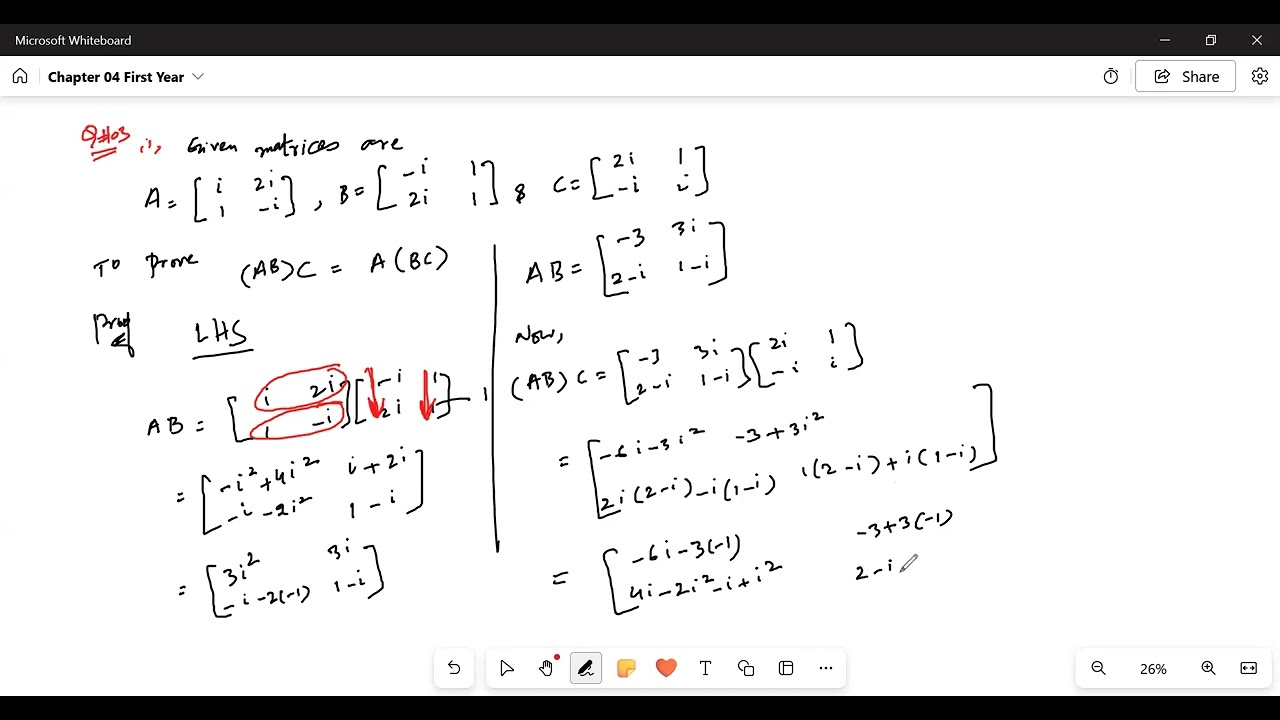 Microsoft Whiteboard
Chapter 04 First Year
Share
Q#03 i, Given matrices are
A = [ i 2i
1 -i ] , B = [ -i 1
2i 1 ] & C = [ 2i 1
-i i ]
To Prove (AB)C = A(BC)
Proof LHS
AB = [ i 2i
1 -i ] [ -i 1
2i 1 ]
= [ -i²+4i² i+2i
-i-2i² 1-i ]
= [ 3i² 3i
-i-2(-1) 1-i ]
AB = [ -3 3i
2-i 1-i ]
Now,
(AB)C = [ -3 3i
2-i 1-i ] [ 2i 1
-i i ]
= [ -6i-3i² -3+3i²
2i(2-i)-i(1-i) 1(2-i)+i(1-i) ]
= [ -6i-3(-1) -3+3(-1)
4i-2i²-i+i² 2-i
26%